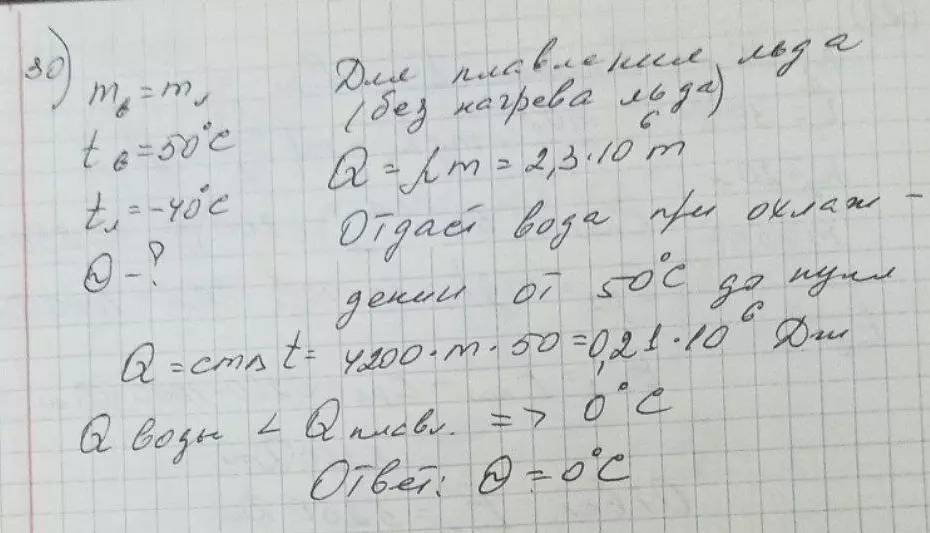 30)
m_в = m_л
t_в = 50°C
t_л = -40°C
Θ - ?
Для плавления льда
(без нагрева льда)
Q = λm = 2,3·10⁶ m
Отдаёт вода при охлаж-
дении от 50°C до нуля
Q = cmΔt = 4200·m·50 = 0,21·10⁶ Дж
Q воды < Q плавл. => 0°C
Ответ: Θ = 0°C